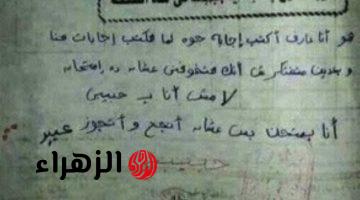 هو أنا عارف أكتب إجابة جوه لما هكتب إجابات هنا
وبعدين متفتكرش أنك هتخوفني عشان ده امتحان
لا مش أنا يا حبيبي
أنا بمتحن بس عشان أنجح وأتجوز عبير
الزهراء